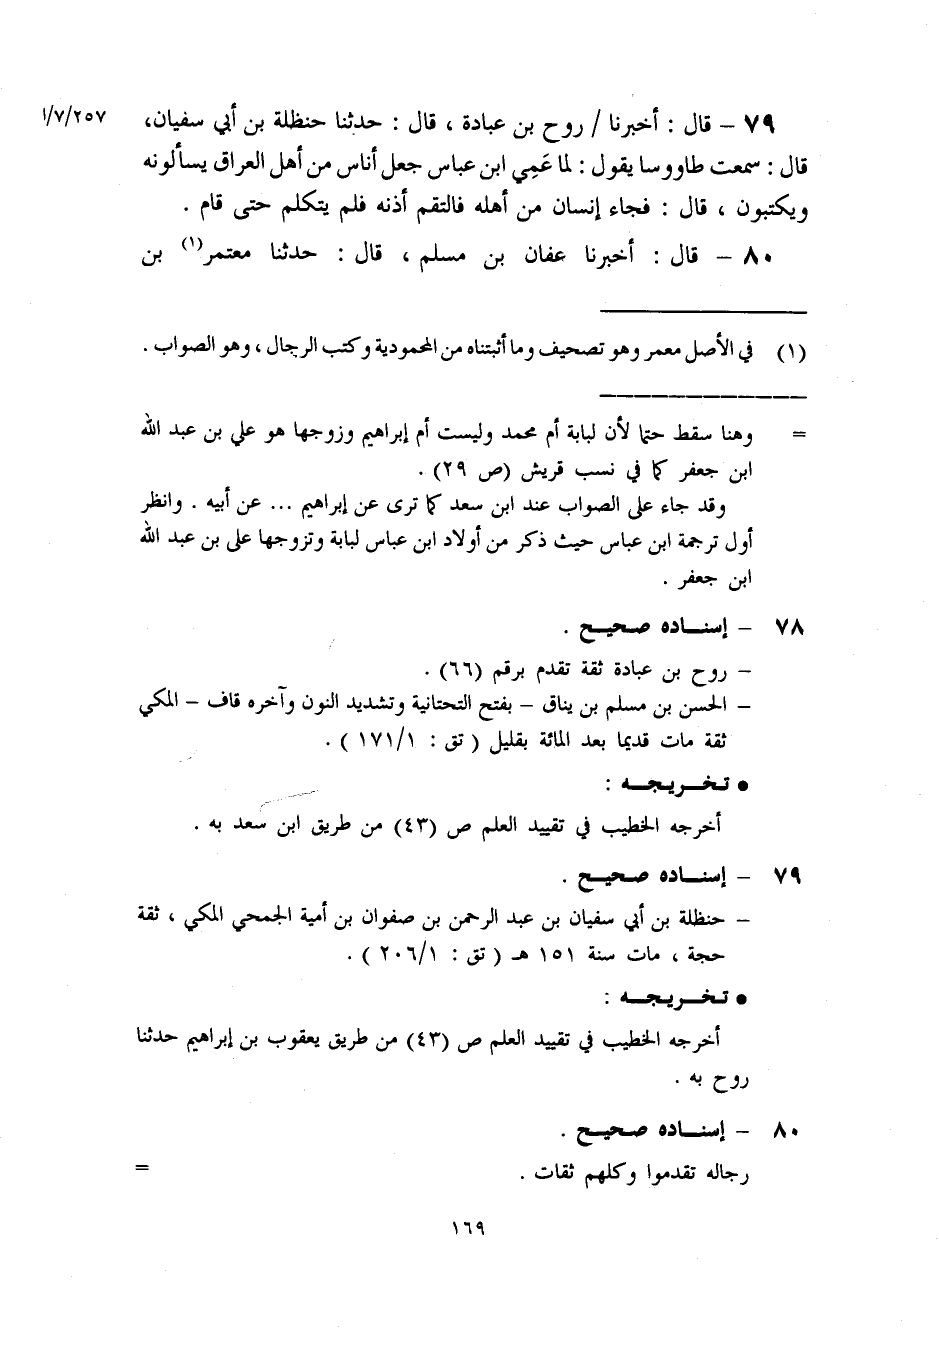 ٧٩ – قال : أخبرنا / روح بن عبادة ، قال : حدثنا حنظلة بن أبي سفيان، ١/٧/٢٥٧
قال : سمعت طاووسا يقول : لما عَمِي ابن عباس جعل أناس من أهل العراق يسألونه
ويكتبون ، قال : فجاء إنسان من أهله فالتقم أذنه فلم يتكلم حتى قام .
٨٠ – قال : أخبرنا عفان بن مسلم ، قال : حدثنا معتمر(١) بن
(١) في الأصل معمر وهو تصحيف وما أثبتناه من المحمودية وكتب الرجال ، وهو الصواب .
= وهنا سقط حتما لأن لبابة أم محمد وليست أم إبراهيم وزوجها هو علي بن عبد الله
ابن جعفر كما في نسب قريش (ص ٢٩) .
وقد جاء على الصواب عند ابن سعد كما ترى عن إبراهيم ... عن أبيه . وانظر
أول ترجمة ابن عباس حيث ذكر من أولاد ابن عباس لبابة وتزوجها علي بن عبد الله
ابن جعفر .
٧٨ – إسناده صحيح .
– روح بن عبادة ثقة تقدم برقم (٦٦) .
– الحسن بن مسلم بن يناق – بفتح التحتانية وتشديد النون وآخره قاف – المكي
ثقة مات قديما بعد المائة بقليل ( تق : ١٧١/١ ) .
● تخريجه :
أخرجه الخطيب في تقييد العلم ص (٤٣) من طريق ابن سعد به .
٧٩ – إسناده صحيح .
– حنظلة بن أبي سفيان بن عبد الرحمن بن صفوان بن أمية الجمحي المكي ، ثقة
حجة ، مات سنة ١٥١ هـ ( تق : ٢٠٦/١ ) .
● تخريجه :
أخرجه الخطيب في تقييد العلم ص (٤٣) من طريق يعقوب بن إبراهيم حدثنا
روح به .
٨٠ – إسناده صحيح .
رجاله تقدموا وكلهم ثقات . =
١٦٩